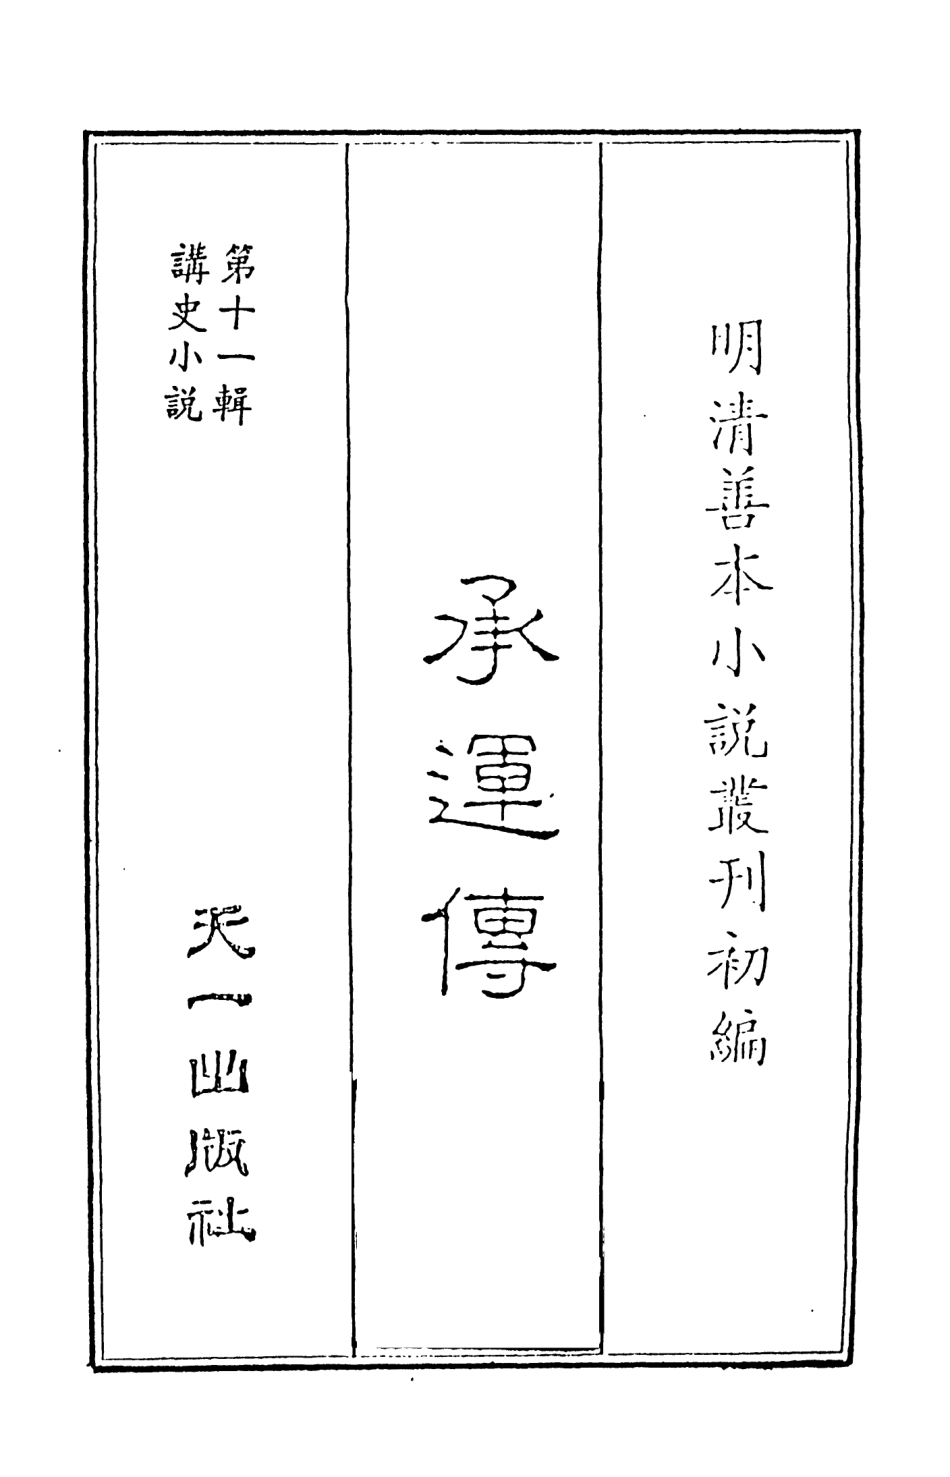 明清善本小説叢刊初編
承運傳
第十一輯
講史小説
天一出版社